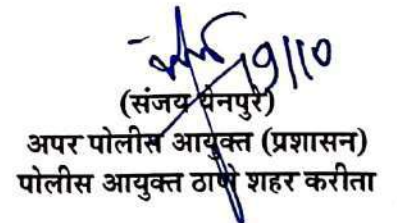 9/10
(संजय येनपुरे)
अपर पोलीस आयुक्त (प्रशासन)
पोलीस आयुक्त ठाणे शहर करीता